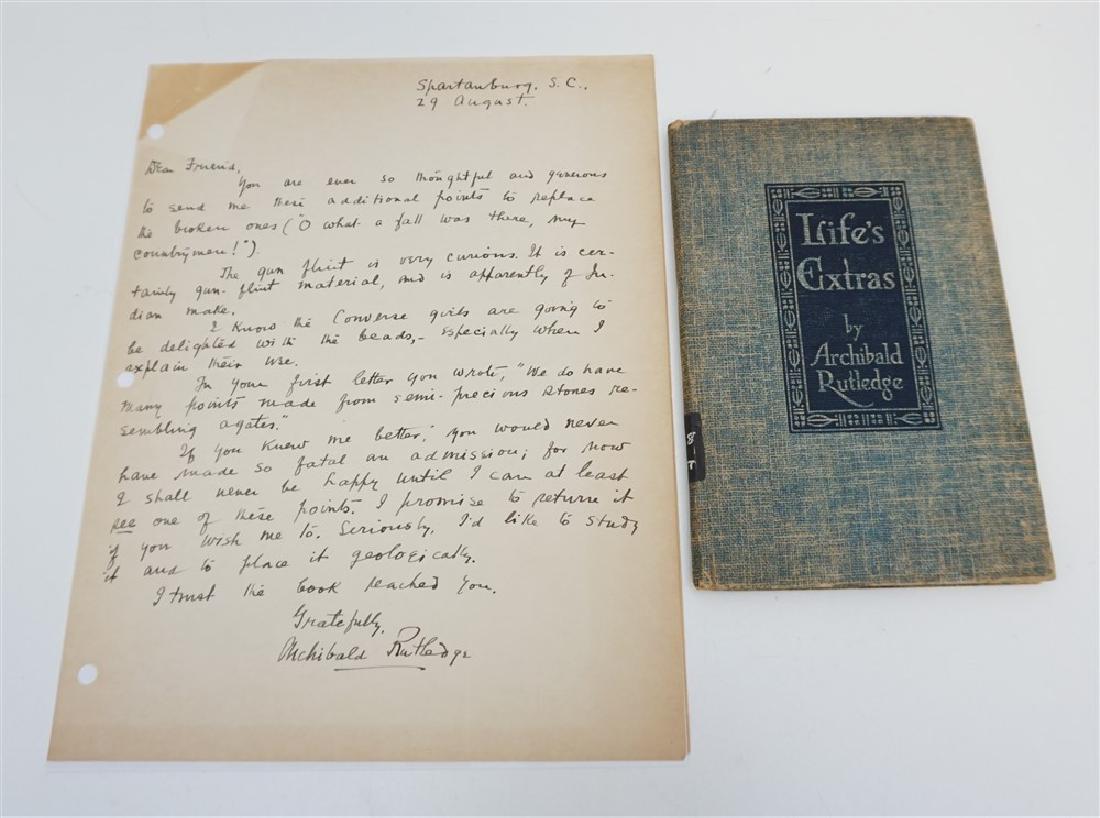 Spartanburg, S.C.,
29 August.
Dear Friend,
You are ever so thoughtful and generous
to send me these additional points to replace
the broken ones ("O what a fall was there, my
countrymen!").
The gun flint is very curious. It is cer-
tainly gun-flint material, and is apparently of In-
dian make.
I know the Converse girls are going to
be delighted with the beads, - especially when I
explain their use.
In your first letter you wrote, "We do have
many points made from semi-precious stones re-
sembling agates."
If you knew me better, you would never
have made so fatal an admission; for now
I shall never be happy until I can at least
see one of these points. I promise to return it
if you wish me to. Seriously, I'd like to study
it and to place it geologically.
I trust the book reached you.
Gratefully,
Archibald Rutledge
Life's
Extras
by
Archibald
Rutledge
8
T